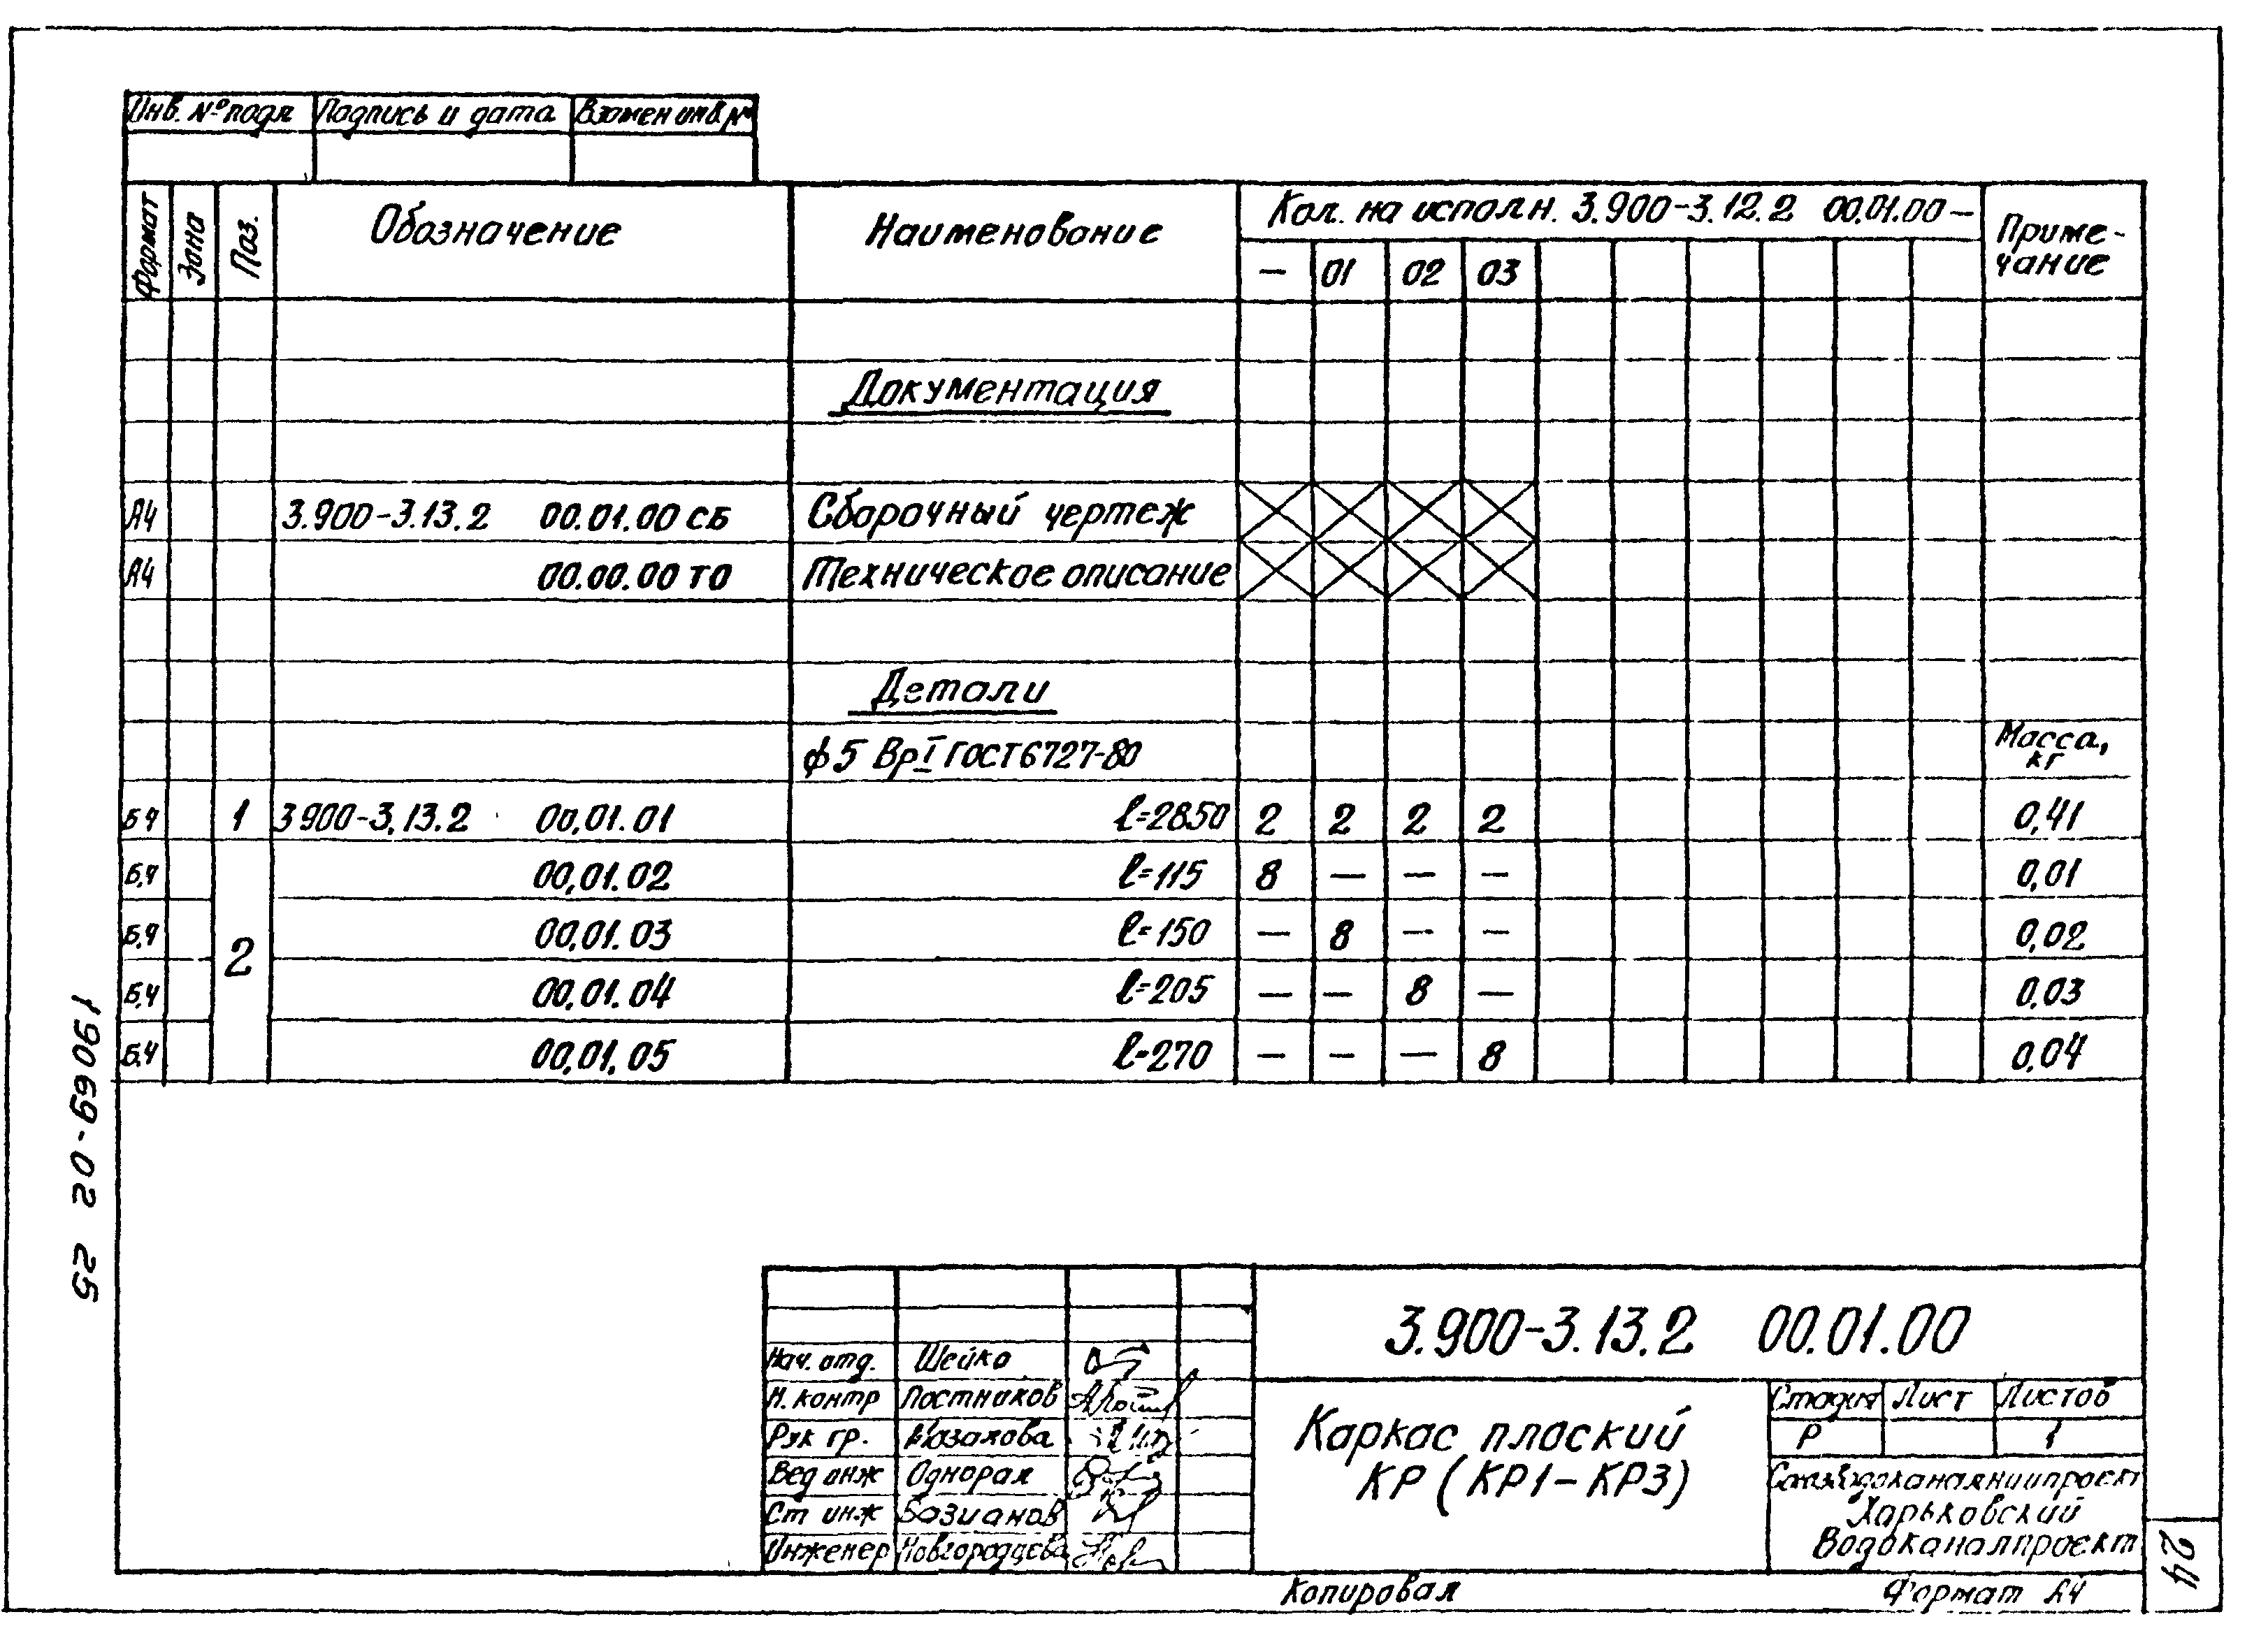 Инв. № подл Подпись и дата Взамен инв. №
Формат Зона Поз. Обозначение Наименование Кол. на исполн. 3.900-3.12.2 00.01.00 – Приме-
чание
– 01 02 03
Документация
А4 3.900-3.13.2 00.01.00 СБ Сборочный чертеж
А4 00.00.00 ТО Техническое описание
Детали
ф5 ВрI ГОСТ 6727-80 Масса,
кг
Б.Ч 1 3.900-3.13.2 00.01.01 ℓ=2850 2 2 2 2 0,41
Б.Ч 2 00.01.02 ℓ=115 8 – – – 0,01
Б.Ч 00.01.03 ℓ=150 – 8 – – 0,02
Б.Ч 00.01.04 ℓ=205 – – 8 – 0,03
Б.Ч 00.01.05 ℓ=270 – – – 8 0,04
19069-02 25
3.900-3.13.2 00.01.00
Нач. отд. Шейко
Н. контр Постников
Рук гр. Казакова
Вед инж Однорал
Ст инж Базианов
Инженер Новгородцева
Каркас плоский
КР (КР1-КР3)
Стадия Лист Листов
Р 1
Союзводоканалниипроект
Харьковский
Водоканалпроект
24
Копировал Формат А4